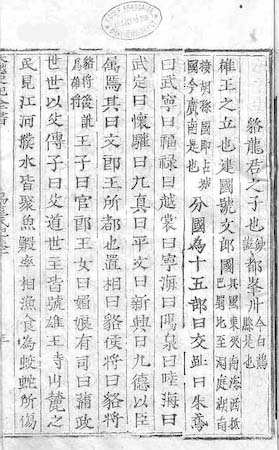 貉龍君之子也缺諱都峯州今白鶴縣是也
雄王之立也建國號文郎國其國東夾南海西抵巴蜀北至洞庭湖南
接胡孫國即占城國今廣南是也分國為十五部曰交趾曰朱鳶
曰武寧曰福祿曰越裳曰寧海曰陽泉曰陸海曰
武定曰懷驩曰九真曰平文曰新興曰九德以臣
屬焉其曰文郎王所都也置相曰貉侯將曰貉將
貉將後訛為雄將王子曰官郎王女曰媚娘有司曰蒲政
世世以父傳子曰父道世主皆號雄王寺山麓之
民見江河濮水皆聚魚蝦率相漁食為蛟蛇所傷